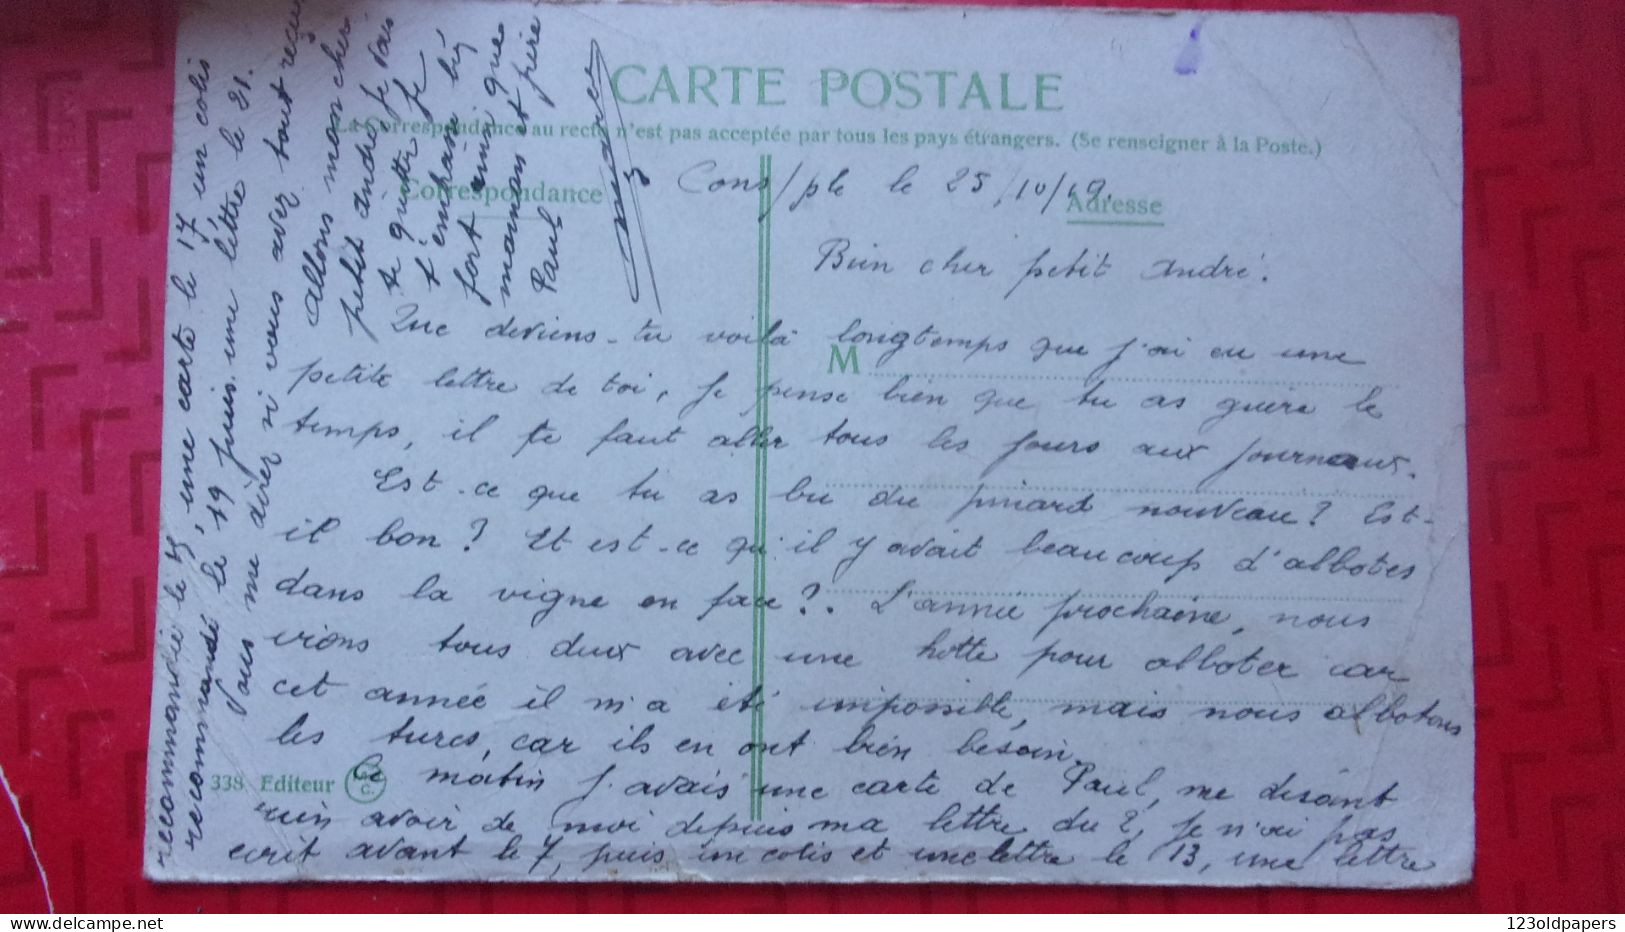 CARTE POSTALE
La Correspondance au recto n'est pas acceptée par tous les pays étrangers. (Se renseigner à la Poste.)
Correspondance
Adresse
M
Cons/ple le 25/10/19.
Bien cher petit André.
Que deviens-tu voilà longtemps que j'ai eu une
petite lettre de toi, je pense bien que tu as guère le
temps, il te faut aller tous les jours aux journaux.
Est-ce que tu as bu du pinard nouveau? Est-
il bon? Et est-ce qu'il y avait beaucoup d'albotes
dans la vigne en face?. L'année prochaine, nous
irions tous deux avec une hotte pour alboter car
cet année il m'a été impossible, mais nous albotons
les turcs, car ils en ont bien besoin.
338 Editeur
Ce matin j'avais une carte de Paul, me disant
rien avoir de moi depuis ma lettre du 2, je n'ai pas
ecrit avant le 7, puis un colis et une lettre le 13, une lettre
recommandée le 15, une carte le 17 un colis
recommandé le 19 puis une lettre le 21.
Vous me direz si vous avez tout reçu
allons mon cher
petit André je vais
te quitter je
t'embrasse bien
fort ainsi que
maman et père
Paul
123oldpapers